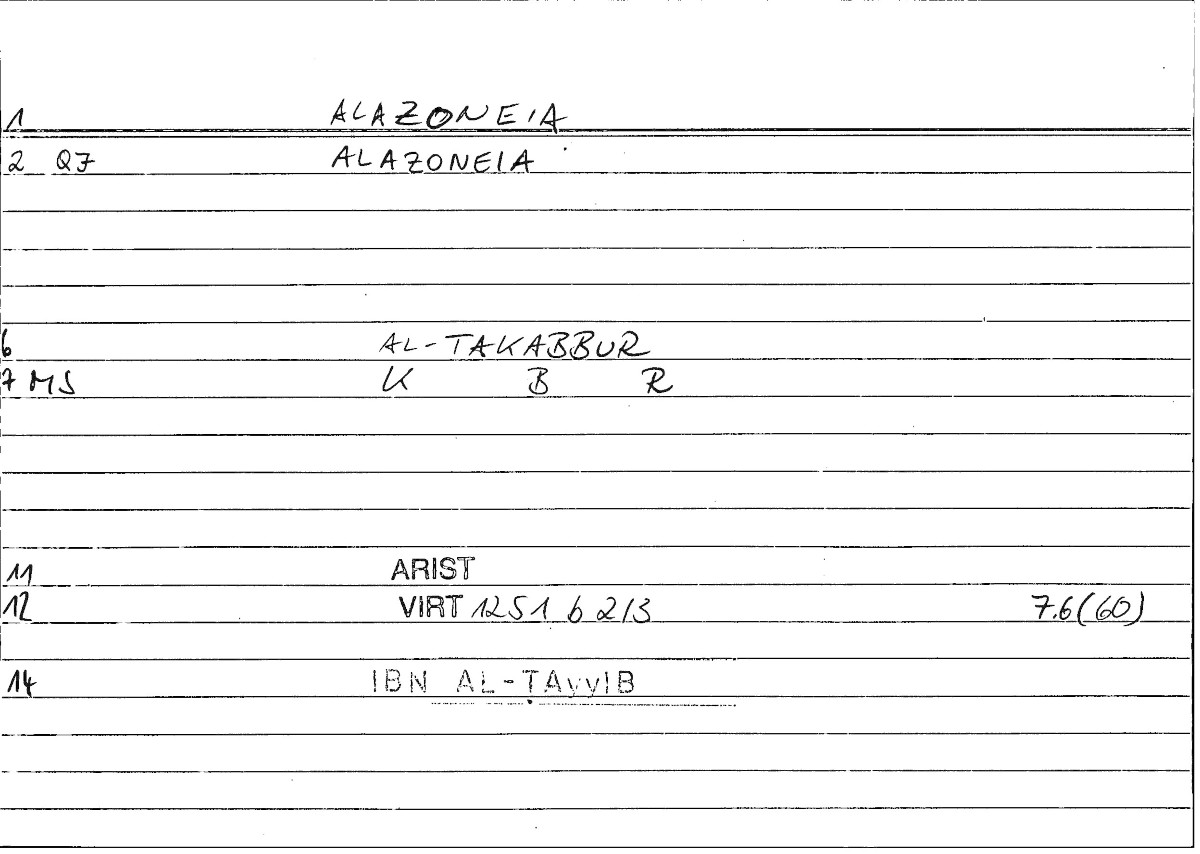 1 ALAZONEIA
2 Q7 ALAZONEIA
6 AL-TAKABBUR
7 MS K B R
11 ARIST
12 VIRT 1251 b 2/3 7.6(60)
14 IBN AL-ṬAyyIB